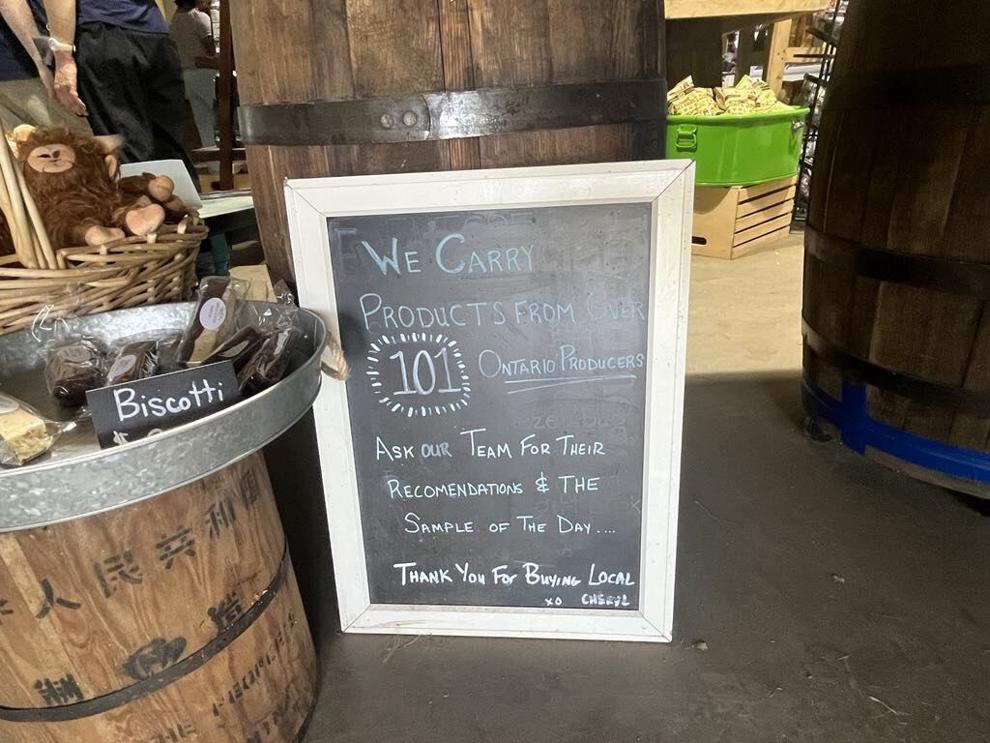 We Carry
Products From Over
101 Ontario Producers
Ask our Team For Their
Recomendations & The
Sample of The Day....
Thank You For Buying Local
xo Cheryl
Biscotti
人民共和国